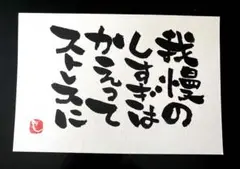 我慢の
しすぎは
かえって
ストレスに